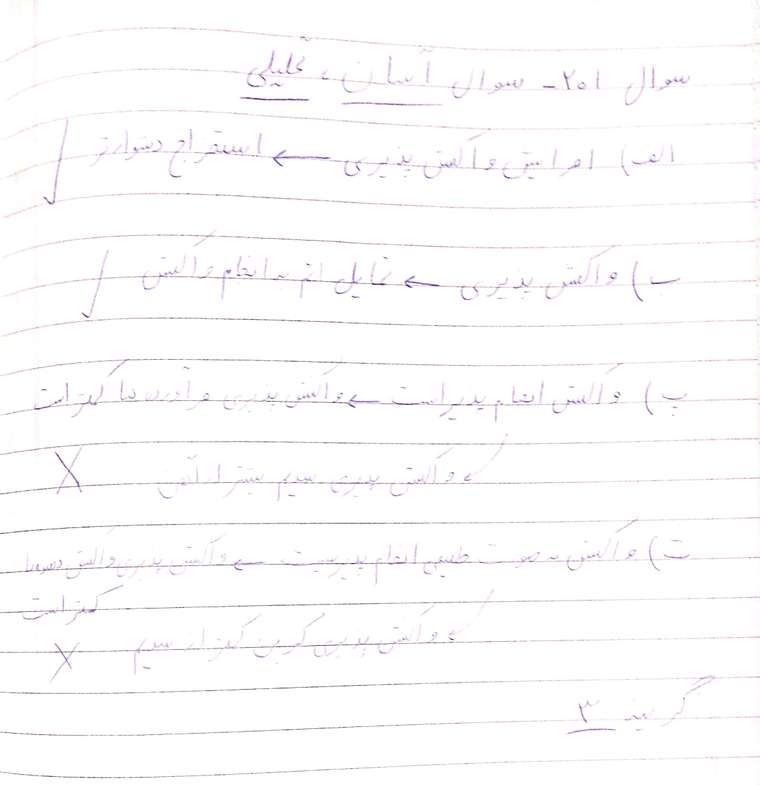 سوال ۲۰۱ - سوال آسان ، تحلیلی
الف) افزایش واکنش پذیری ← استخراج دشوارتر
ب) واکنش پذیری ← تمایل اتم به انجام واکنش
پ) واکنش انجام پذیر است ← واکنش پذیری فرآورده ها کمتر است
← واکنش پذیری سدیم بیشتر از آهن
ت) واکنش به صورت طبیعی انجام پذیر نیست ← واکنش پذیری واکنش دهنده ها
کمتر است
← واکنش پذیری کربن کمتر از سدیم
گزینه ۳